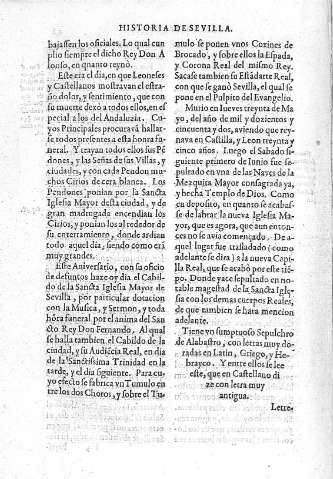 HISTORIA DE SEVILLA.
bajassen los oficiales. Lo qual cum
plio siempre el dicho Rey Don A
lonso, en quanto reynò.
Este era el dia, en que Leoneses
y Castellanos mostravan el estra-
ño dolor, y sentimiento, que con
su muerte dexò a todos ellos, en es
pecial a los del Andaluzia. Cu-
yos Principales procurava hallar
se todos presentes a esta honra fu-
neral. Y trayan todos ellos sus Pé
dones, y las Señas de sus Villas, y
ciudades, y con cada Pendon mu-
chos Cirios de cera blanca. Los
Pendones ponian por la Sancta
Iglesia Mayor desta ciudad, y de
gran madrugado encendian los
Cirios, y ponian los al rededor de
su enterramiento, donde ardian
todo aquel dia, siendo como erá
muy grandes.
Este Aniversario, con su oficio
de defuntos haze oy dia el Cabil-
do de la Sanctа Iglesia Mayor de
Sevilla, por particular dotacion
con la Musica, y Sermon, y toda
hóra funeral por el anima del San
cto Rey Don Fernando. Al qual
se halla tambien el Cabildo de la
ciudad, y su Audiécia Real, en dia
de la Sanctissima Trinidad en la
tarde, y el dia siguiente. Para cu-
yo efecto se fabrica vn Tumulo en
tre los dos Choros, y sobre el Tu-
mulo se ponen vnos Coxines de
Brocado, y sobre ellos la Espada,
y Corona Real del mismo Rey.
Sacase tambien su Estádarte Real,
con que se ganó Sevilla, el qual se
pone en el Pulpito del Evangelio.
Murio en Jueves treynta de Ma
yo, del año de mil y dozientos y
cincuenta y dos, aviendo que rey-
nava en Castilla, y Leon treynta y
cinco años. Luego el Sabado si-
guiente primero de Iunio fue se-
pultado en vna de las Naves de la
Mezquita Mayor consagrada ya,
y hecha Templo de Dios. Como
en deposito, en quanto se acabas-
se de labrar la nueva Iglesia Ma-
yor, que es agora, que aun enton-
ces no se avia començado. De a-
quel lugar fue trasladado (como
adelante se dira) a la nueva Capi-
lla Real, que se acabò por este tié-
po. Donde yaze sepultado en no-
table magestad de la Sancta Igle-
sia con los demas cuerpos Reales,
de que tambien se hara mencion
adelante.
Tiene vn sumptuoso Sepulchro
de Alabastro, con letras muy do-
radas en Latin, Griego, y He-
brayco. Y entre ellos se lee
este, que en Castellano di
ze con letra muy
antigua.
Letre.